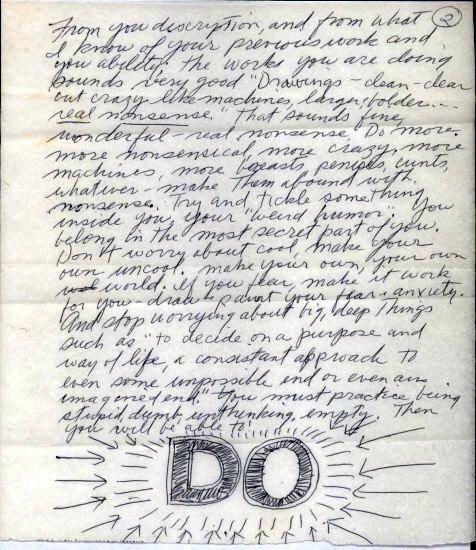 ②
From you description, and from what
I know of your previous work and
you ability, the works you are doing
sounds very good "Drawings - clean - clear
but crazy like machines, larger, bolder....
real nonsense." That sounds fine,
wonderful - real nonsense. Do more.
more nonsensical, more crazy, more
machines, more breasts, penises, cunts,
whatever - make them abound with
nonsense. Try and tickle something
inside you, your "weird humor." You
belong in the most secret part of you.
Don't worry about cool, make your
own uncool. make your own, your own
world. If you fear, make it work
for you - draw & paint your fear & anxiety.
And stop worrying about big, deep things
such as "to decide on a purpose and
way of life, a consistant approach to
even some impossible end or even an
imagined end." You must practice being
stupid, dumb, unthinking, empty. Then
you will be able to
DO